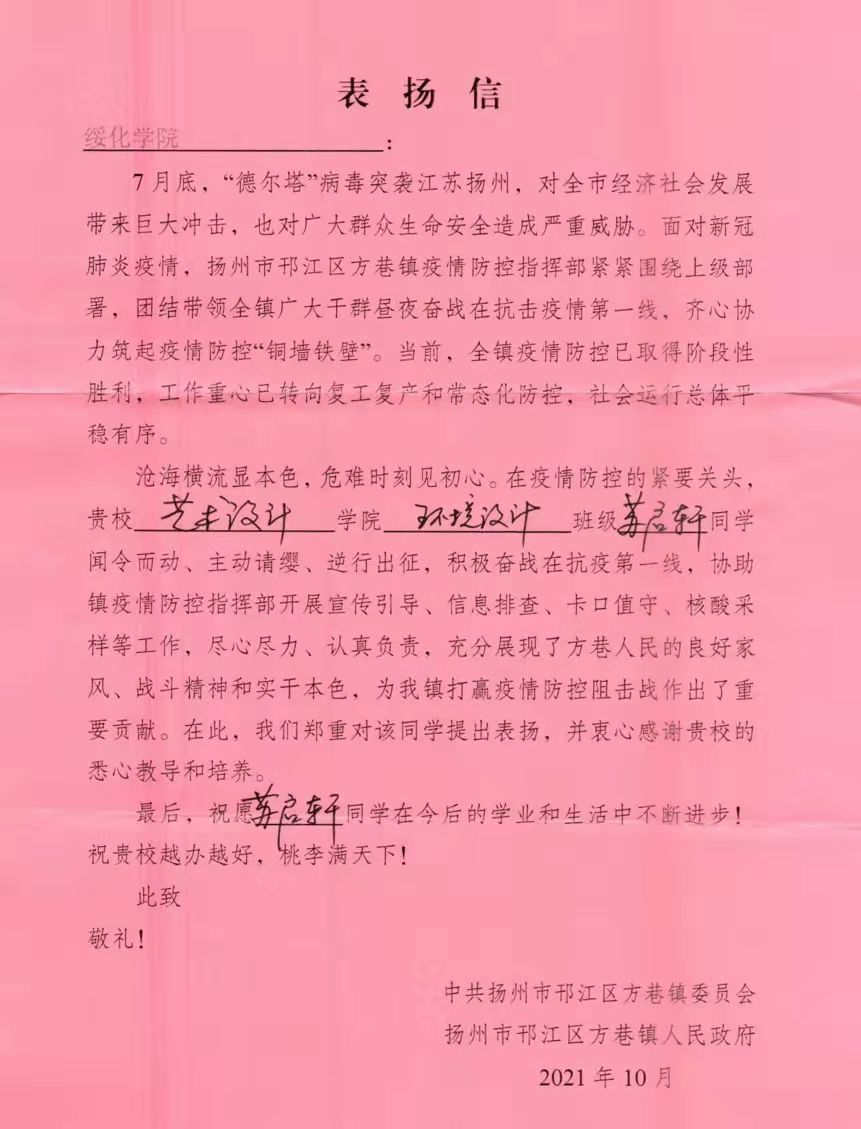 表扬信
绥化学院：
7月底，“德尔塔”病毒突袭江苏扬州，对全市经济社会发展
带来巨大冲击，也对广大群众生命安全造成严重威胁。面对新冠
肺炎疫情，扬州市邗江区方巷镇疫情防控指挥部紧紧围绕上级部
署，团结带领全镇广大干群昼夜奋战在抗击疫情第一线，齐心协
力筑起疫情防控“铜墙铁壁”。当前，全镇疫情防控已取得阶段性
胜利，工作重心已转向复工复产和常态化防控，社会运行总体平
稳有序。
沧海横流显本色，危难时刻见初心。在疫情防控的紧要关头，
贵校艺术设计学院环境设计班级苏启轩同学
闻令而动、主动请缨、逆行出征，积极奋战在抗疫第一线，协助
镇疫情防控指挥部开展宣传引导、信息排查、卡口值守、核酸采
样等工作，尽心尽力、认真负责，充分展现了方巷人民的良好家
风、战斗精神和实干本色，为我镇打赢疫情防控阻击战作出了重
要贡献。在此，我们郑重对该同学提出表扬，并衷心感谢贵校的
悉心教导和培养。
最后，祝愿苏启轩同学在今后的学业和生活中不断进步！
祝贵校越办越好，桃李满天下！
此致
敬礼！
中共扬州市邗江区方巷镇委员会
扬州市邗江区方巷镇人民政府
2021年10月